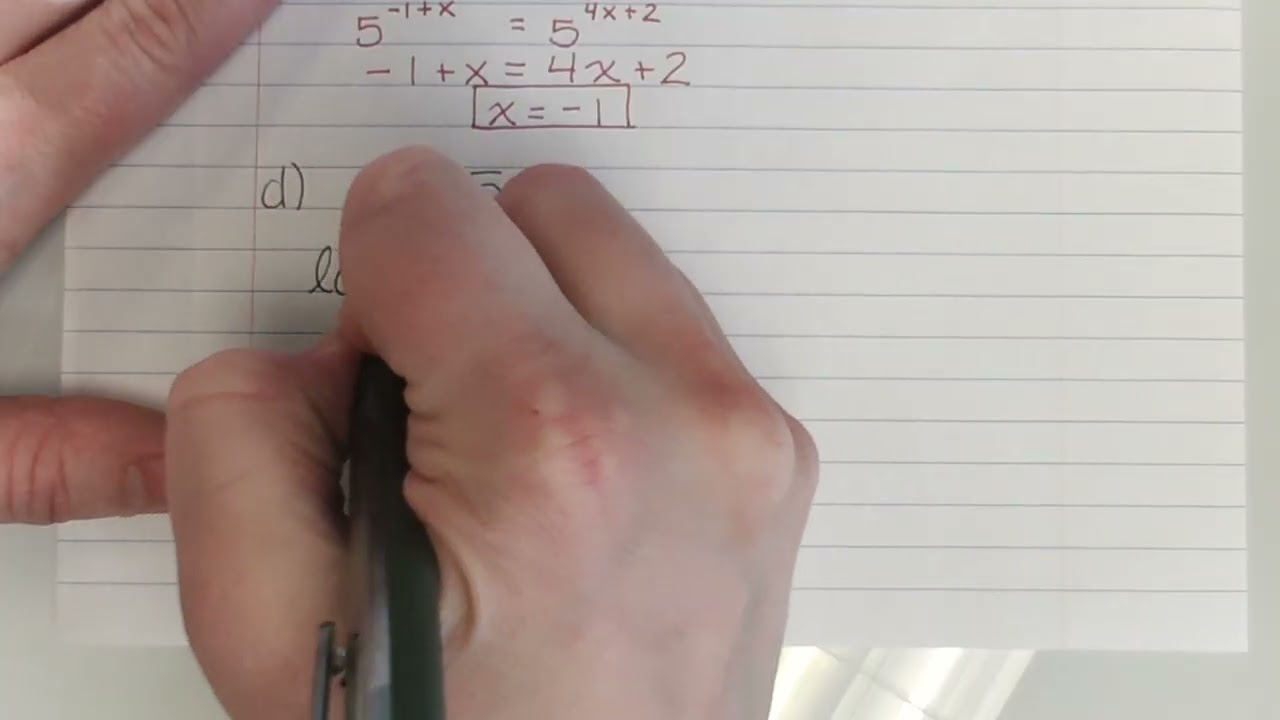 5^{-1+x} = 5^{4x+2}
-1+x = 4x+2
x = -1
d)